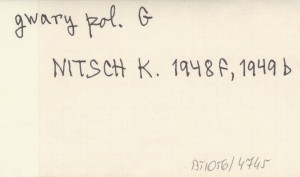 gwary pol. G
NITSCH K. 1948F, 1949b
BI1056/4745